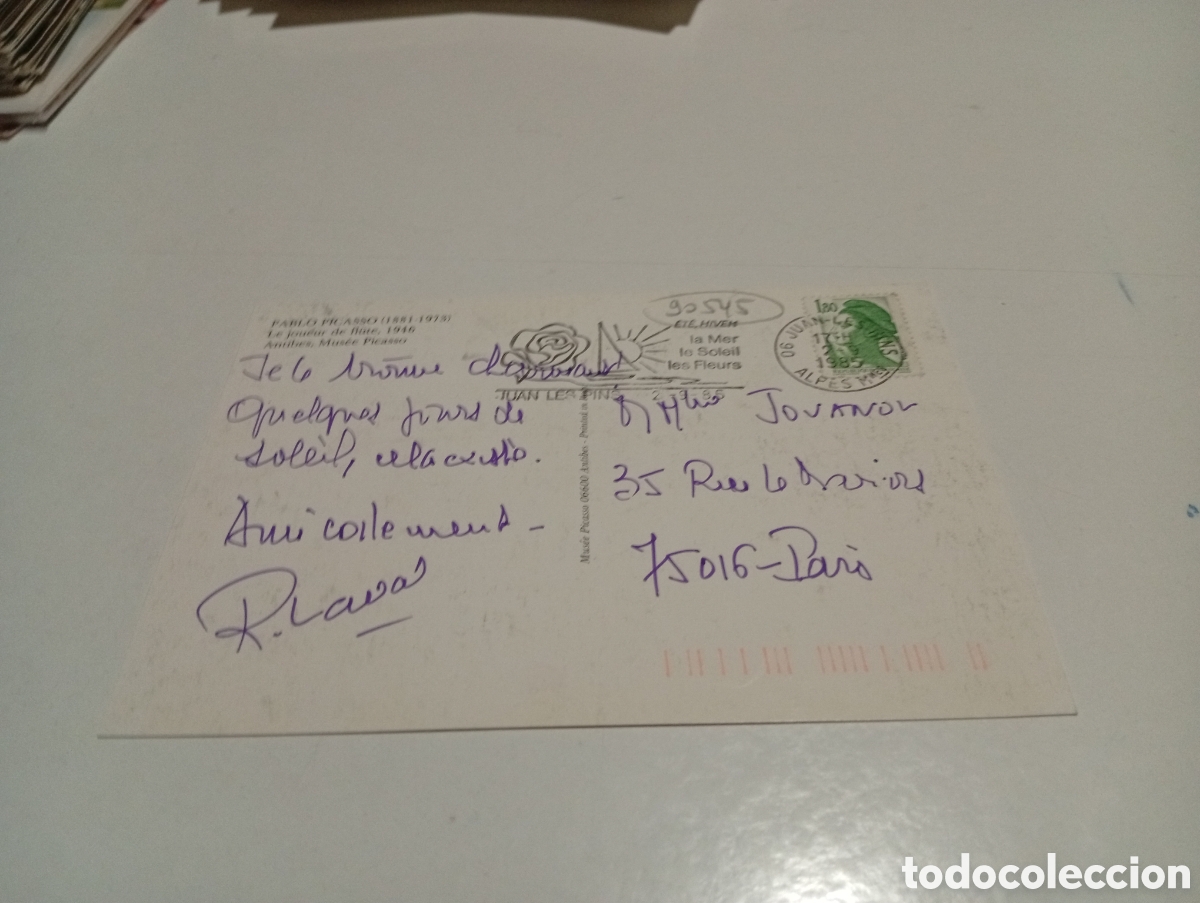 PABLO PICASSO (1881-1973)
Le joueur de flûte, 1946
Antibes, Musée Picasso
90545
ETE, HIVER
la Mer
le Soleil
les Fleurs
JUAN LES PINS
1,80
06 JUAN-LES-PINS
ALPES MMES
Je le trouve
Quelques jours de
soleil,
Amicalement -
R. Lavas
JOVANOV
35 Rue
75016-Paris
Musée Picasso 06600 Antibes - Printed in
todocoleccion